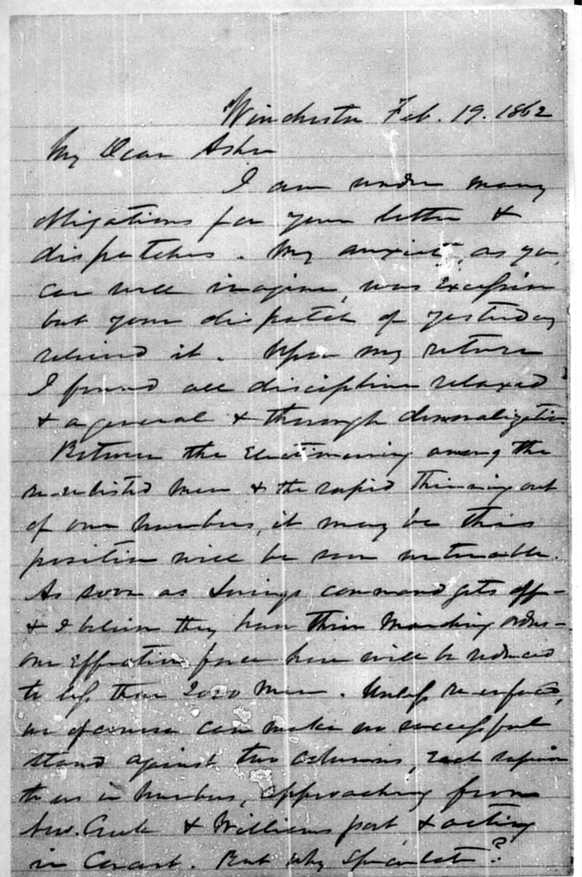 Winchester Feb. 19. 1862
My Dear Asher
I am under many
obligations for your letter &
dispatches. My anxiety, as you
can well imagine, was excessive
but your dispatch of yesterday
relieved it. Upon my return
I found all discipline relaxed
& a general & through demoralization.
Between the Electioneering among the
re-enlisted men & the rapid thinning out
of our numbers, it may be this
position will be soon untenable.
As soon as Lorings command gets off—
& I believe they have their Marching orders—
our Effective force here will be reduced
to less than 2000 Men. Unless re-enforced,
we of course can make no successful
stand against two columns, each superior
to us in numbers, approaching from
New. Creek & Williamsport, & acting
in Concert. But why Speculate?